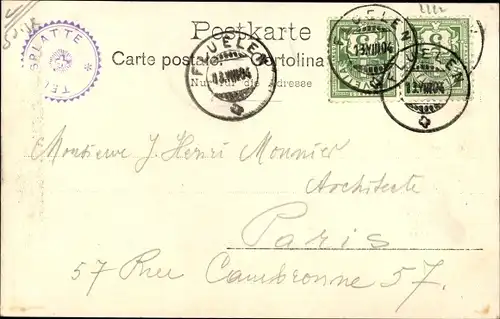 Postkarte
Carte postale. Cartolina
Nur für die Adresse
TELLSPLATTE
FLUELEN
13.VIII.04
FLUELEN
13.VIII.04
FLUELEN
13.VIII.04
Monsieur J. Henri Monnier
Architecte
Paris
57 Rue Cambronne 57.